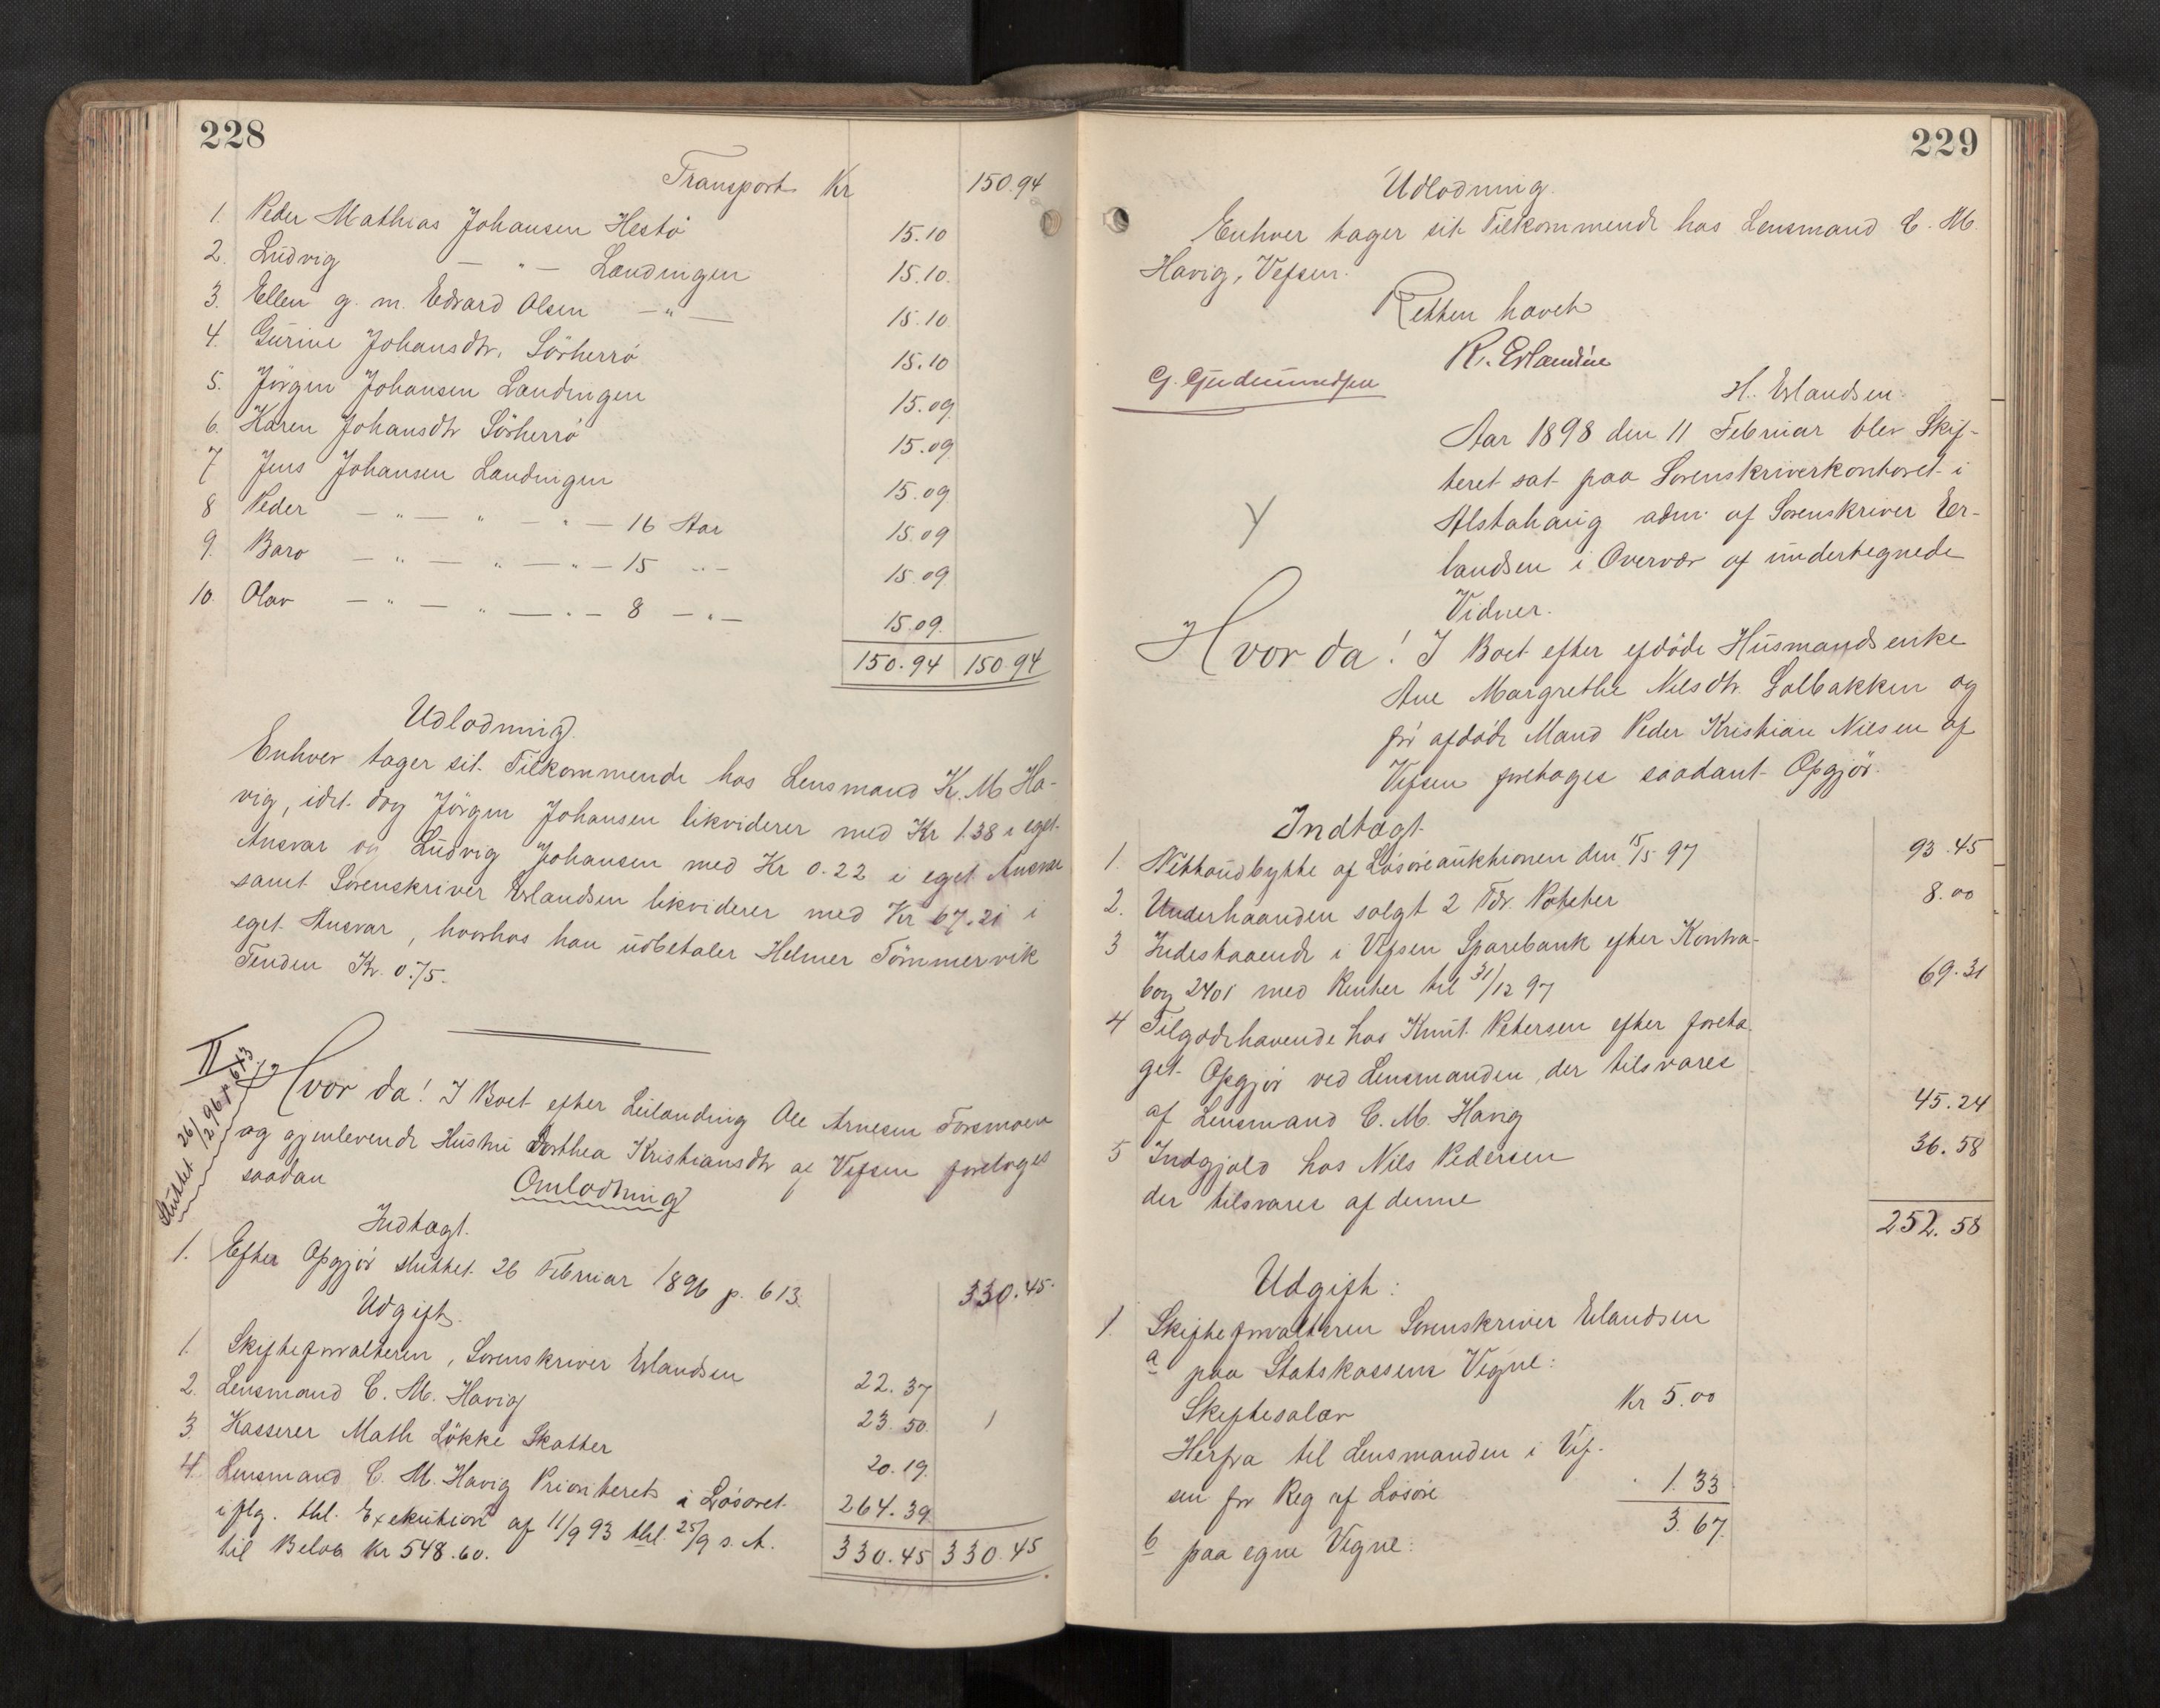 228
Transport Kr 150.94
1. Peder Mathias Johansen Hestö 15.10
2. Ludvig — " — Landingen 15.10
3. Ellen g. m. Edvard Olsen — " — 15.10
4. Gurine Johansdtr. Sörherrö 15.10
5. Jörgen Johansen Landingen 15.09
6. Karen Johansdtr Sörherrö 15.09
7 Jens Johansen Landingen 15.09
8 Peder — " — " — " — 16 Aar 15.09
9. Baro — " — " — " — 15 " — 15.09
10. Olav — " — " — " — 8 — " — 15.09
150.94 150.94
Udlodning.
Enhver tager sit Tilkommende hos Lensmand K. M Ha-
vig, idet dog Jörgen Johansen likviderer med Kr 1.38 i eget
Ansvar og Ludvig Johansen med Kr 0.22 i eget Ansvar
samt Sorenskriver Erlandsen likviderer med Kr 67.21 i
eget Ansvar, hvorhos han udbetaler Helmer Tömmervik
Tenden Kr. 0.75.
II
Sluttet 26/2 96 p 613
Hvor da! I Boet efter Leilænding Ole Arnesen Forsmoen
og gjenlevende Hustru Dorthea Kristiansdtr af Vefsen foretoges
saadan
Omlodning
Indtægt.
1. Efter Opgjör sluttet 26 Februar 1896 p. 613. 330.45
Udgift.
1. Skifteforvalteren, Sorenskriver Erlandsen 22.37
2. Lensmand C. M. Havig 23.50
3. Kasserer Math Lökke Skatter 20.19.
4. Lensmand C. M. Havig Prioriterets i Lösöret
iflg. thl. Exekution af 11/9 93 thl. 25/9 s. A. 264.39
til Belöb Kr 548.60. 330.45 330.45
229
Udlodning.
Enhver tager sit Tilkommende hos Lensmand C. M.
Havig, Vefsen.
Retten hævet
R. Erlandsen
G. Gudmundsen
H. Erlandsen
Aar 1898 den 11 Februar blev Skif-
teret sat paa Sorenskriverkontoret i
Alstahaug adm. af Sorenskriver Er-
landsen i Overvær af undertegnede
Vidner.
Hvor da! I Boet efter afdöde Husmandsenke
Ane Margrethe Nilsdtr. Solbakken og
för afdöde Mand Peder Kristian Nilsen af
Vefsen foretoges saadant Opgjör.
Indtægt
1. Nettoudbytte af Lösöreauktionen den 15/5 97 93.45
2. Underhaanden solgt 2 Tdr. Poteter 8.00
3 Indestaaende i Vefsen Sparebank efter Kontra-
bog 2401 med Renter til 31/12 97 69.31
4 Tilgodehavende hos Knut Petersen efter foreta-
get Opgjör ved Lensmanden, der tilsvares
af Lensmand C. M. Havig 45.24
5 Indgjæld hos Nils Pedersen 36.58
der tilsvares af denne
252.58
Udgift:
1. Skifteforvalteren Sorenskriver Erlandsen
a paa Statskassens Vegne:
Skiftesalær Kr 5.00
Herfra til Lensmanden i Vef-
sen for Reg af Lösöre 1.33
3.67.
b paa egne Vegne: